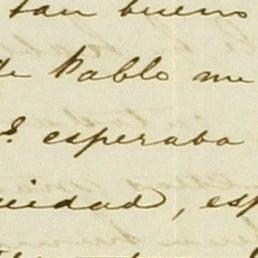 tan bueno
de Pablo me
esperaba
uidad, esp